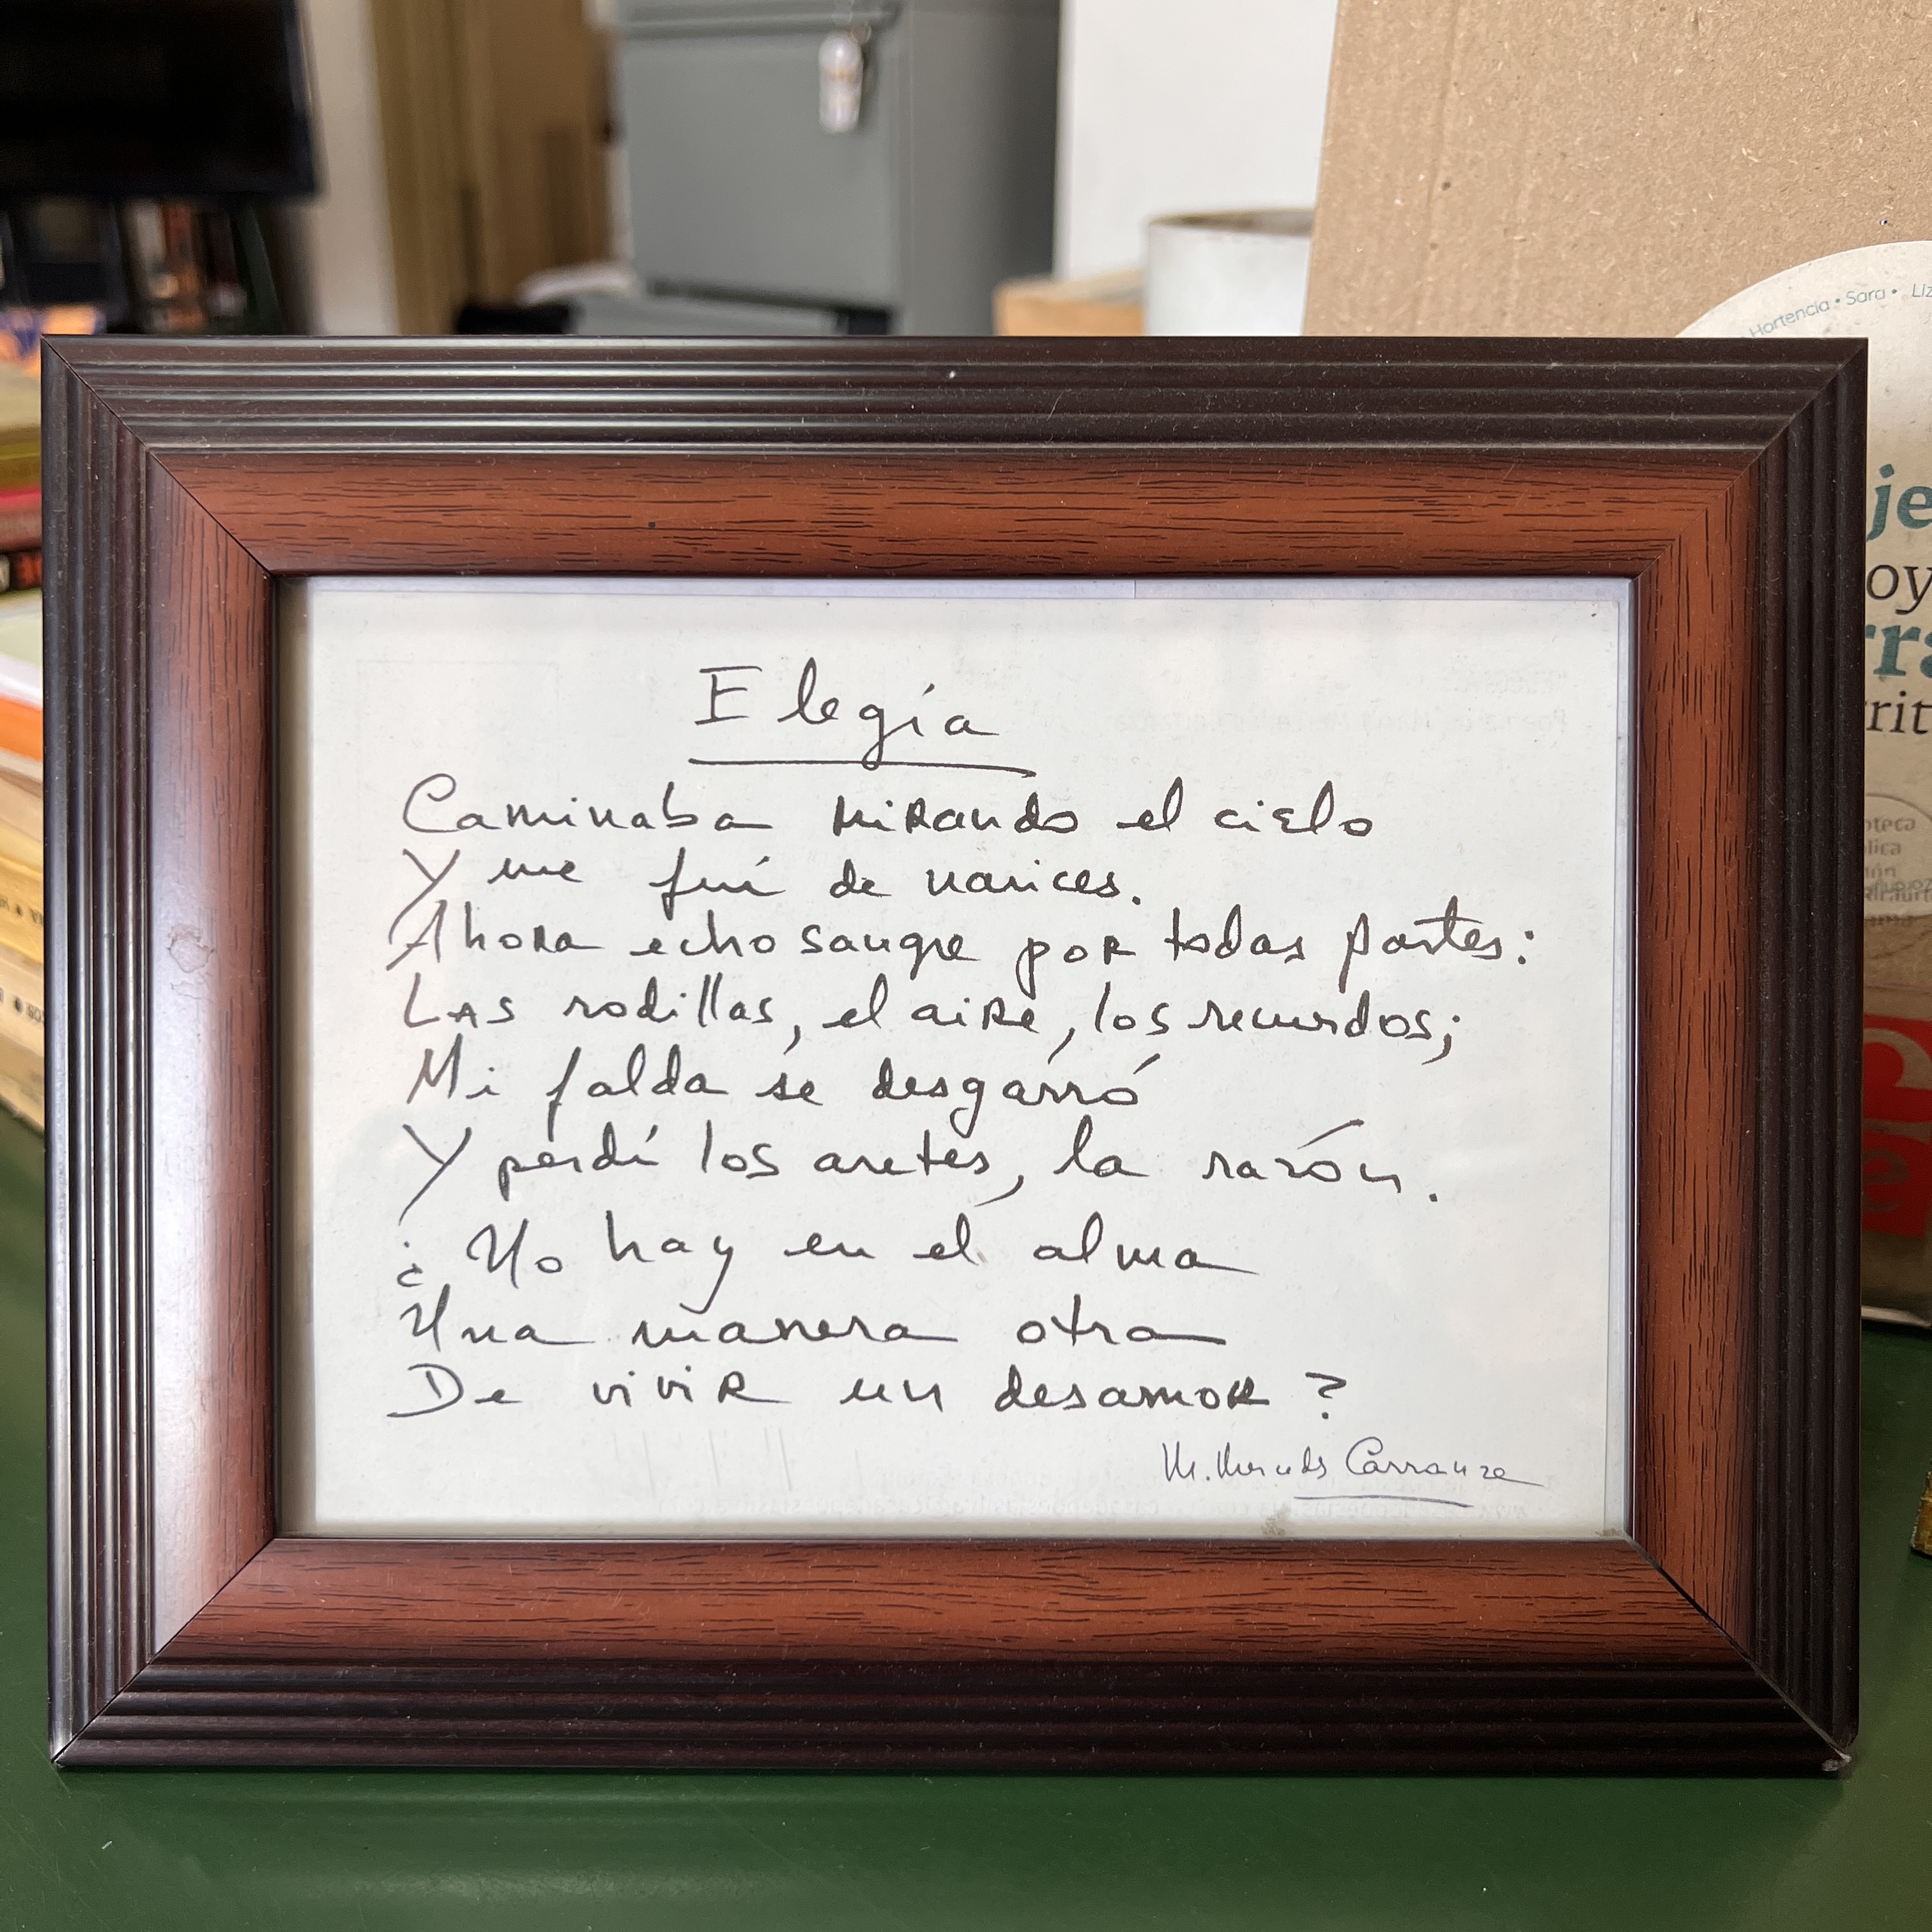 Hortencia • Sara •
Elegía
Caminaba mirando el cielo
Y me fuí de narices.
Ahora echo sangre por todas partes:
Las rodillas, el aire, los recuerdos;
Mi falda se desgarró
Y perdí los aretes, la razón.
¿No hay en el alma
Una manera otra
De vivir un desamor?
M. Mercedes Carranza